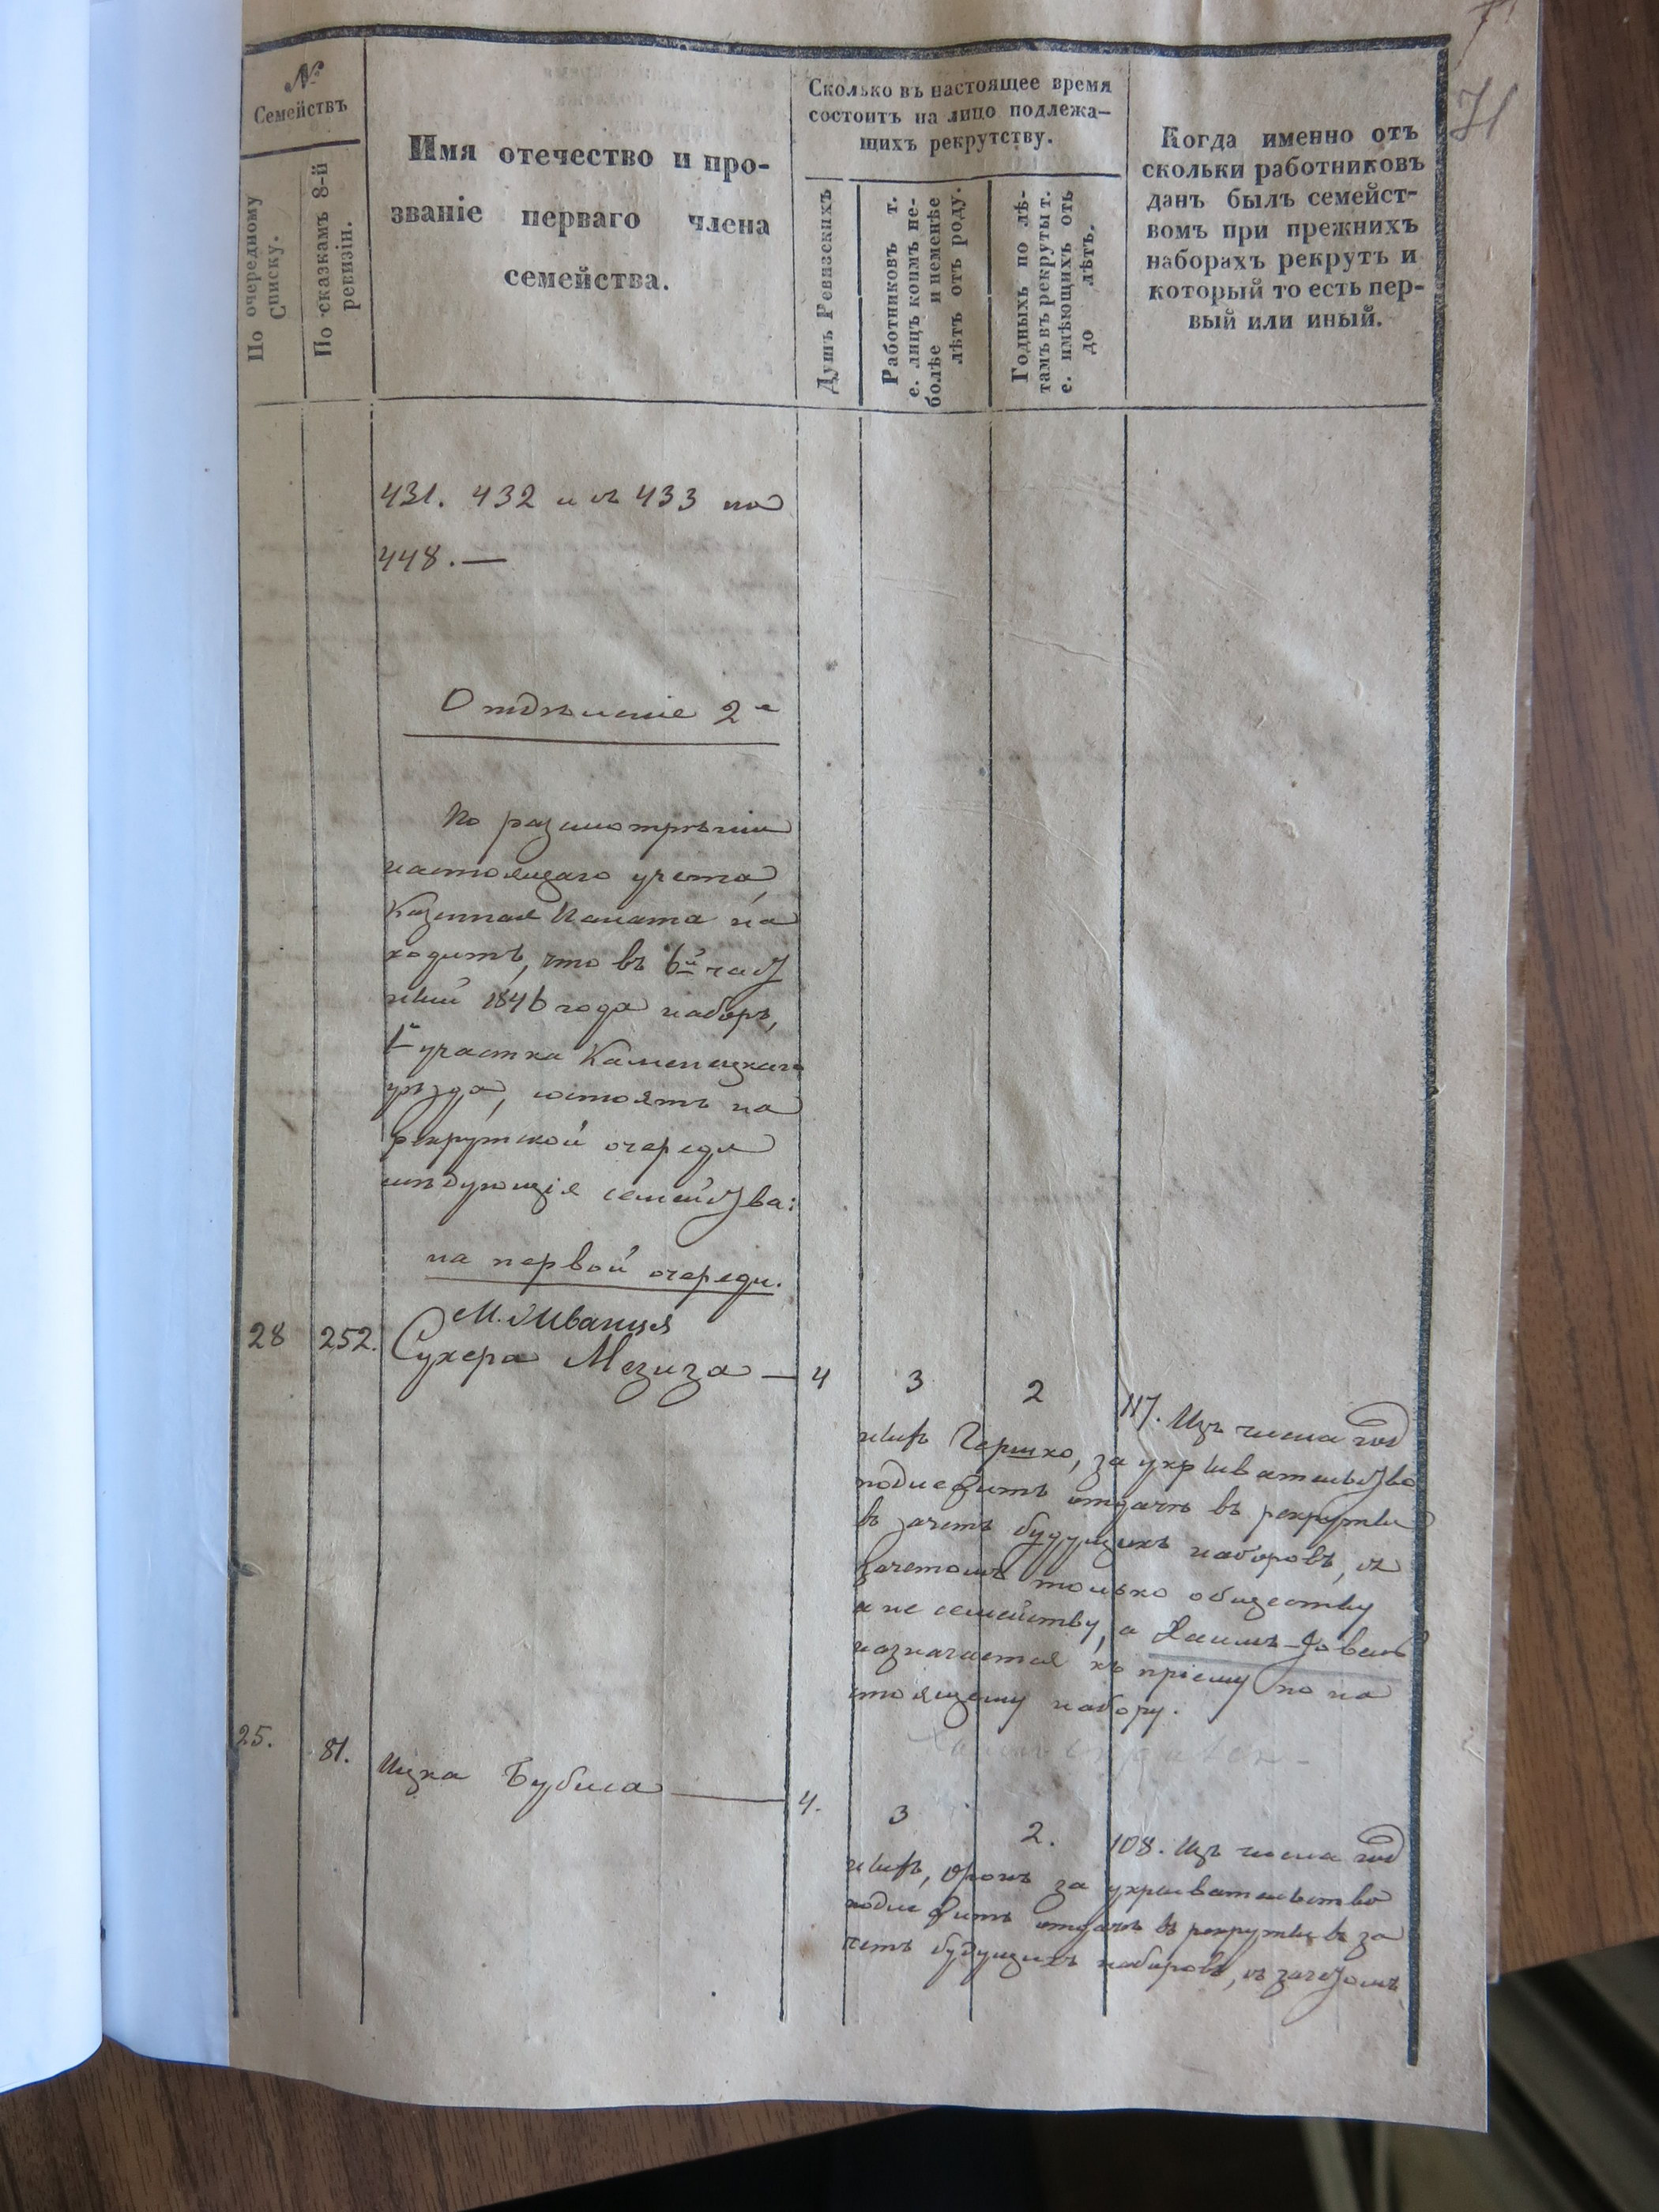 71
№
Семействъ
По очередному Списку.
По сказкамъ 8-й ревизіи.
Имя отечество и про-
званіе перваго члена
семейства.
Сколько въ настоящее время
состоитъ на лицо подлежа-
щихъ рекрутству.
Душъ Ревизскихъ
Работниковъ т.
е. лицъ коимъ не-
болѣе и неменѣе
лѣтъ отъ роду.
Годныхъ по лѣ-
тамъ въ рекруты т.
е. имѣющихъ отъ
до лѣтъ.
Когда именно отъ
скольки работниковъ
данъ былъ семейст-
вомъ при прежнихъ
наборахъ рекрутъ и
который то есть пер-
вый или иный.
431. 432 и съ 433 по
448. —
Отдѣленіе 2е
По разсмотрѣніи
настоящаго учета
Казенная Палата на
ходитъ, что въ 6й част
ный 1846 года наборъ,
1го участка Каменецкаго
уѣзда, состоятъ на
рекрутской очереди
слѣдующія семейства:
на первой очереди.
М. Жванця
28 252. Сухера Мезиза — 4 3 2 117. Изъ числа год
ныхъ Гершко, за укрывательство
подлежитъ отдачѣ въ рекруты
въ зачетъ будущихъ наборовъ, съ
зачетомъ только обществу
а не семейству, а Хаимъ-
назначается къ пріему по на
стоящему набору.
25. 81. Ицка Бубиса — 4. 3 2. 108. Изъ числа год
ныхъ, за укрывательство
подлежитъ отдачѣ въ рекруты въ за
четъ будущихъ наборовъ, съ зачетомъ